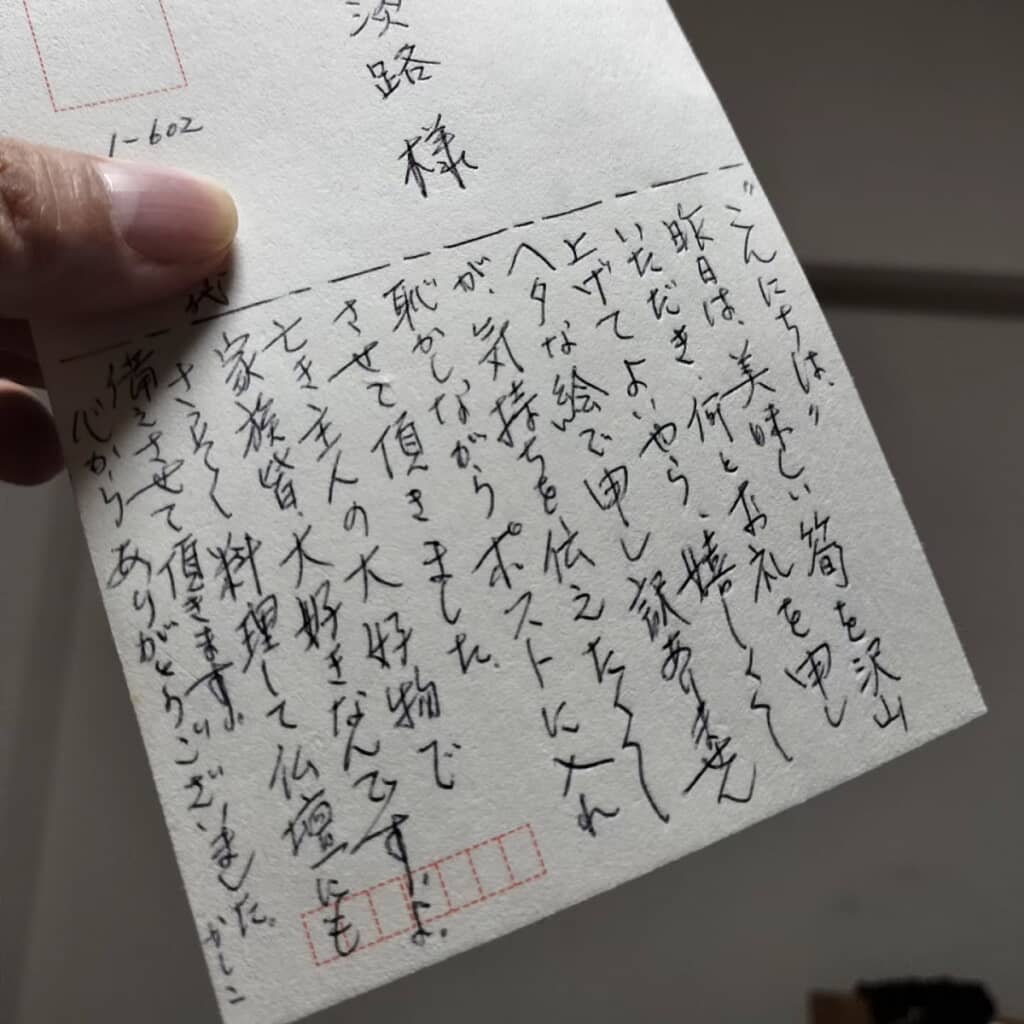 淡路
様
1-602
"こんにちは、"
昨日は、美味しい筍を沢山
いただき、何とお礼を申し
上げてよいやら、嬉しくて
ヘタな絵で申し訳ありません
が、気持ちを伝えたくて
恥かしながらポストに入れ
させて頂きました。
亡き主人の大好物で
家族皆、大好きなんです。よ。
さっそく料理して仏壇にも
備えさせて頂きます。
心からありがとうございました。
かしこ